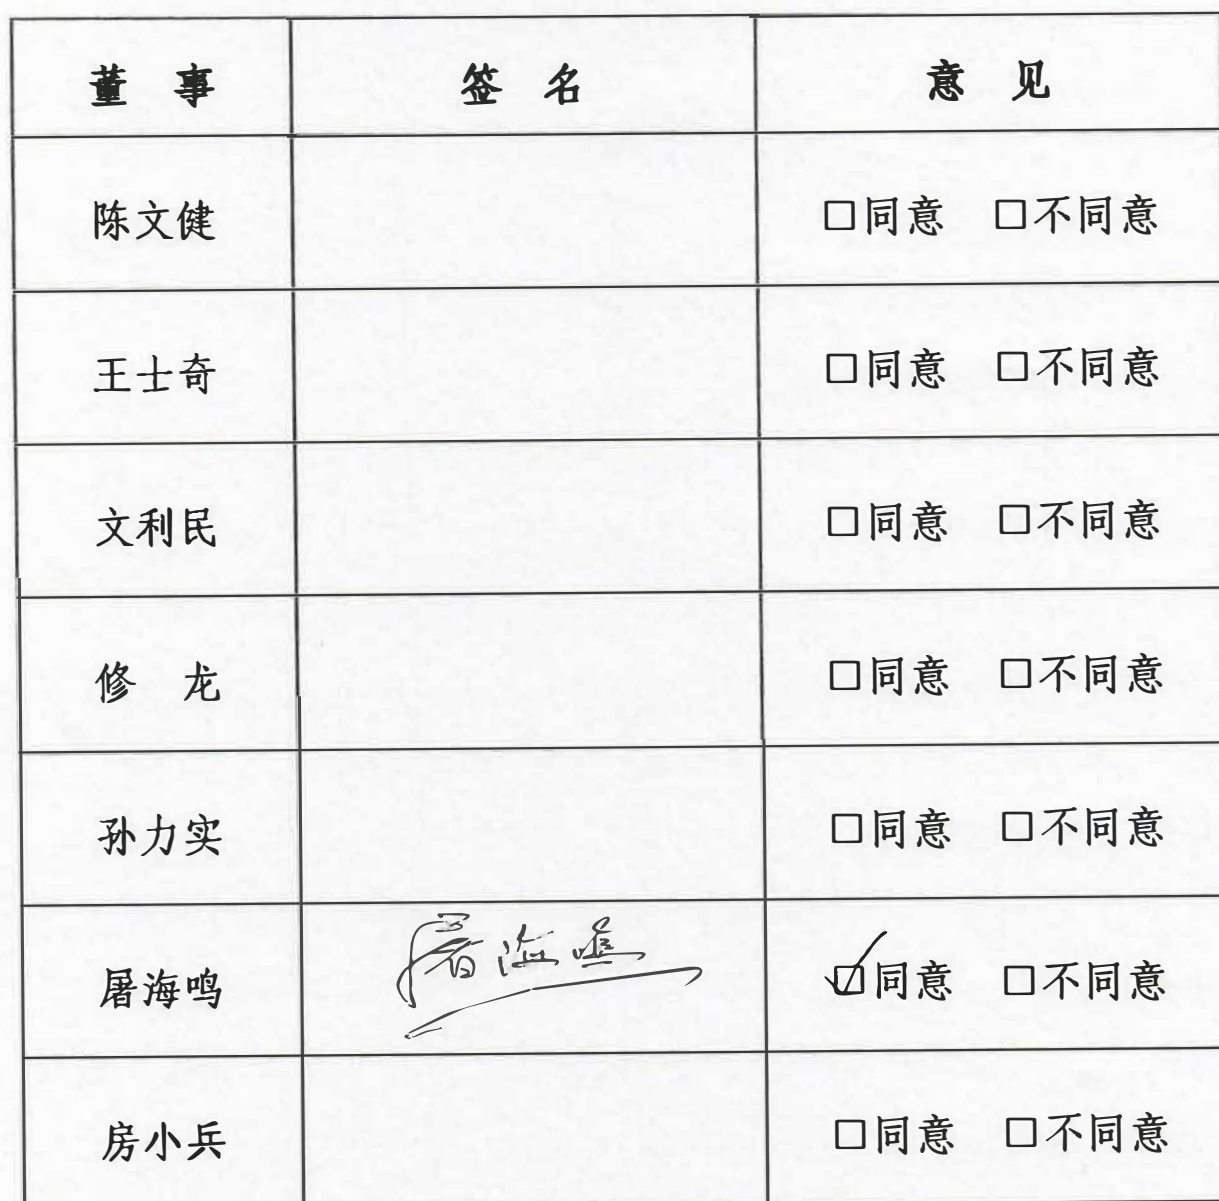 董 事 签 名 意 见
陈文健 □同意 □不同意
王士奇 □同意 □不同意
文利民 □同意 □不同意
修 龙 □同意 □不同意
孙力实 □同意 □不同意
屠海鸣 屠海鸣 ☑同意 □不同意
房小兵 □同意 □不同意